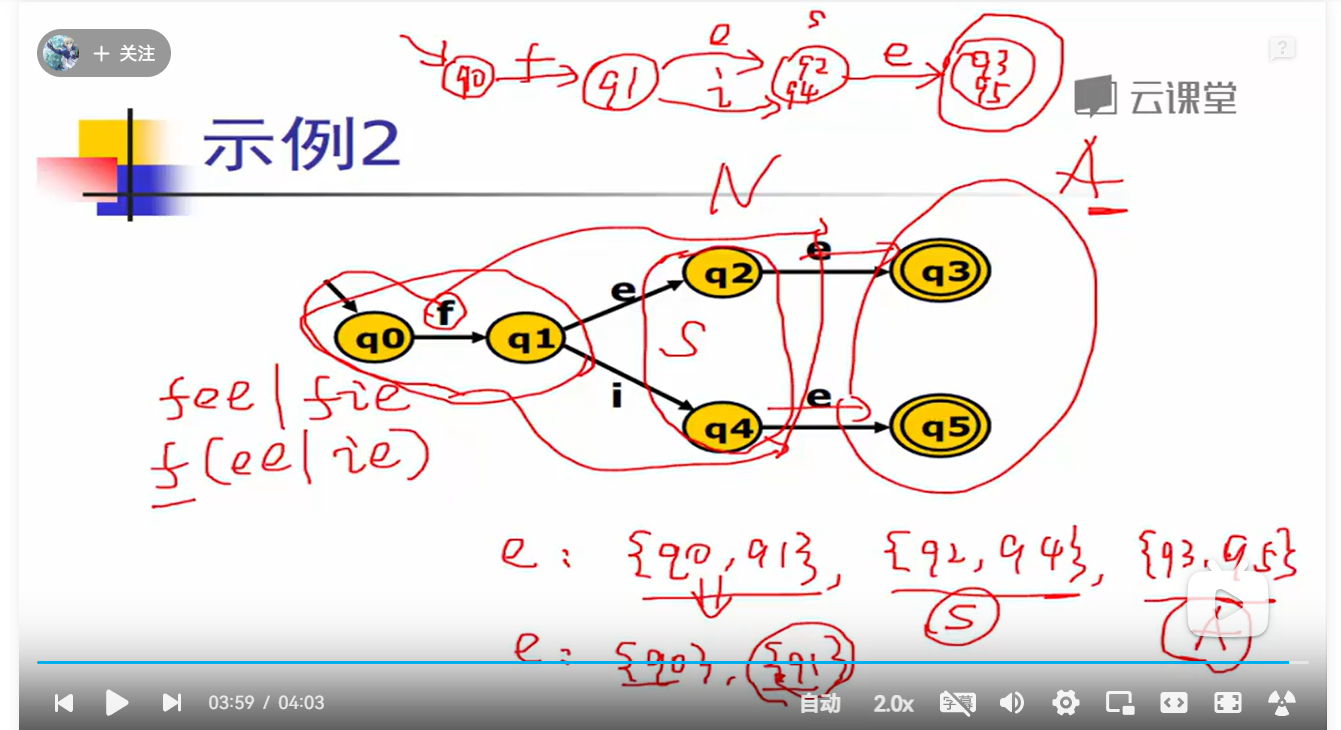 + 关注
q0 f q1 e i s q2 q4 e q3 q5
?
云课堂
示例2
N
A
q0 f q1 e q2 e q3
S
i q4 e q5
fee|fie
f(ee|ie)
e: {q0,q1}, {q2,q4}, {q3,q5}
S A
e: {q0}, {q1}
03:59 / 04:03
自动
2.0x
字幕